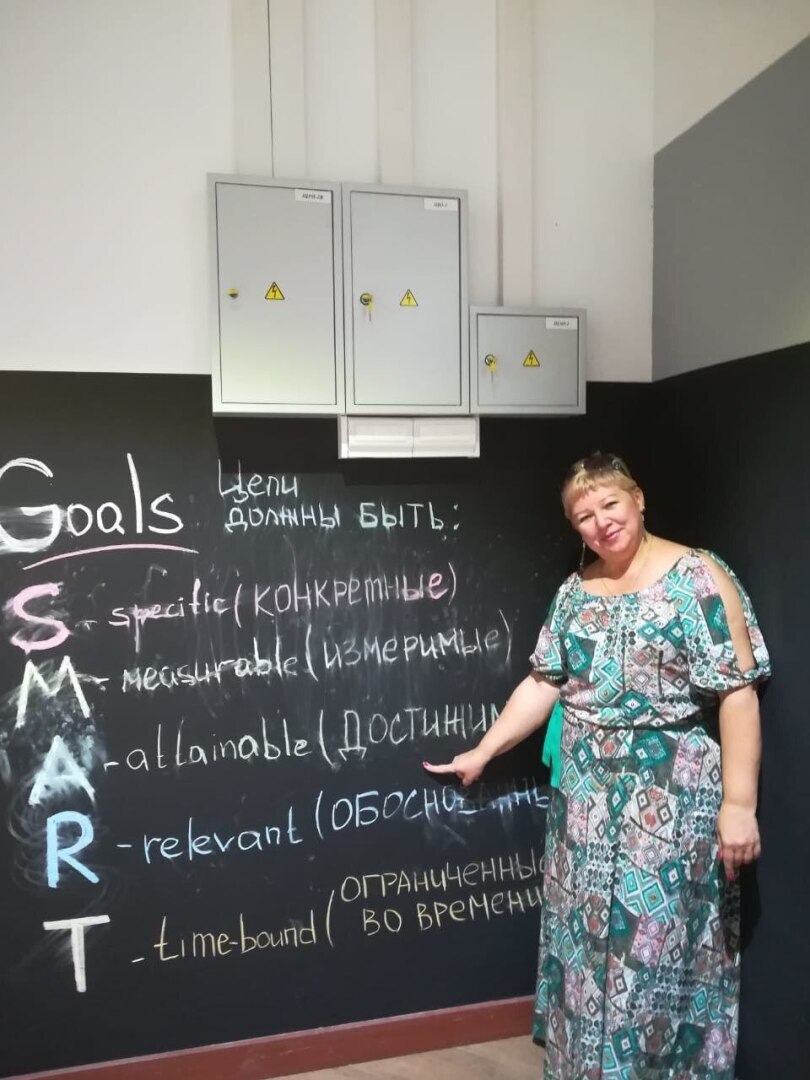 Goals
Цели
должны быть:
S - specific (конкретные)
M - measurable (измеримые)
A - attainable (достижим
R - relevant (обоснованны
T - time-bound (ограниченные
во времени